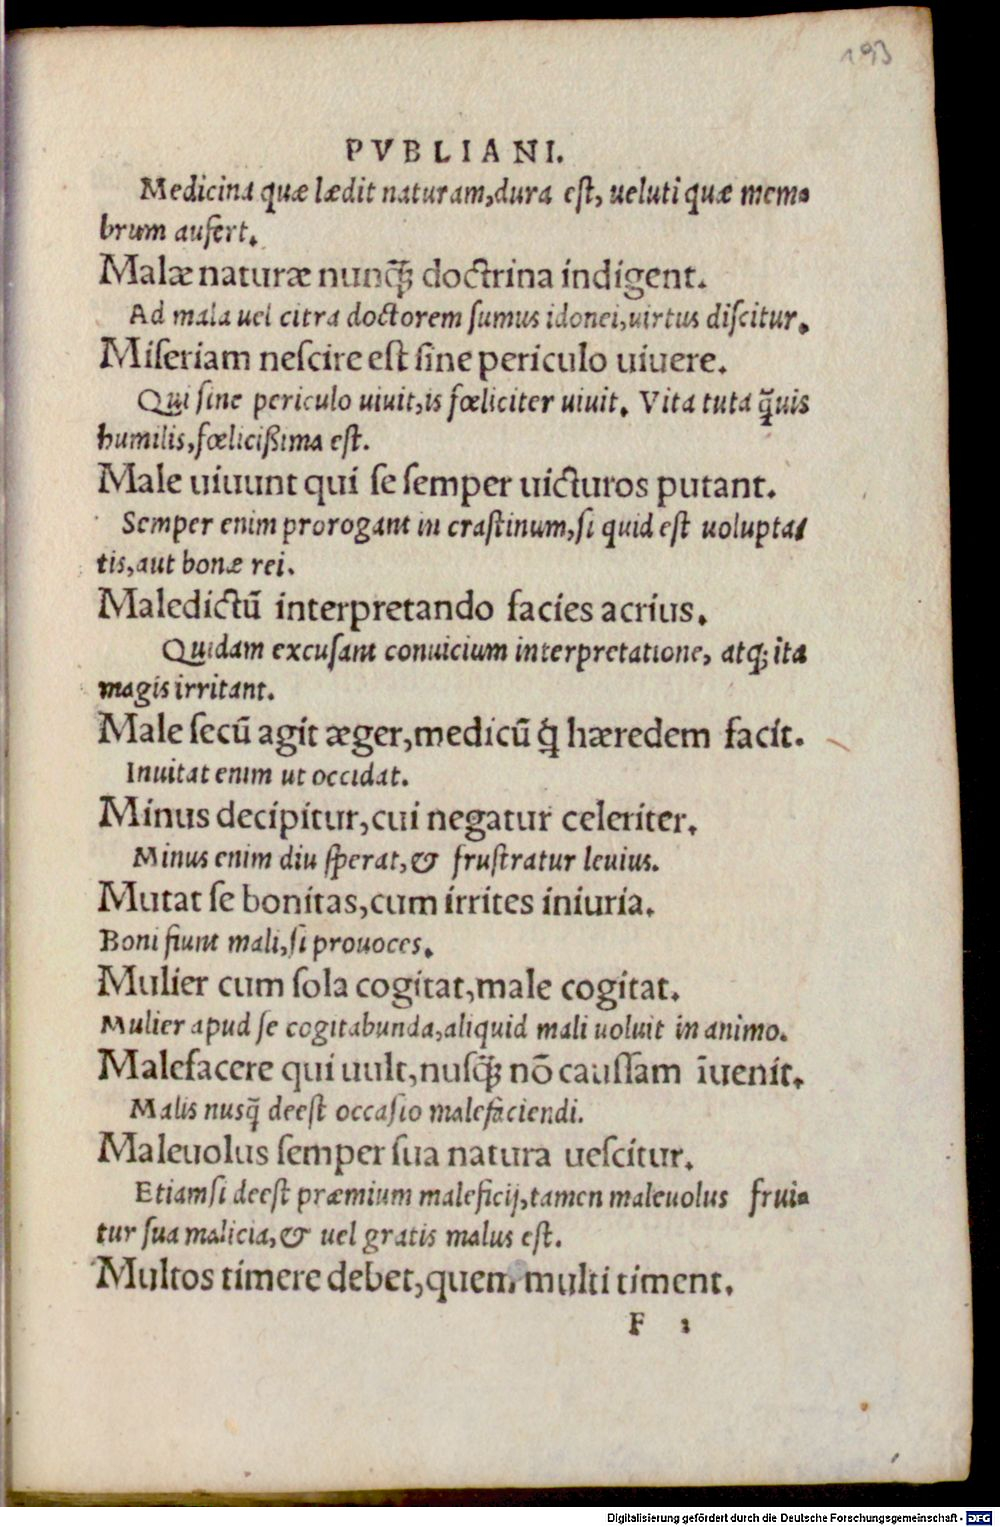 193
PVBLIANI.
Medicina quæ lædit naturam,dura est, ueluti quæ mem-
brum aufert.
Malæ naturæ nunq̃ꝫ doctrina indigent.
Ad mala uel citra doctorem sumus idonei,uirtus discitur.
Miseriam nescire est sine periculo uiuere.
Qui sine periculo uiuit,is fœliciter uiuit. Vita tuta q̃uis
humilis,fœlicißima est.
Male uiuunt qui se semper uicturos putant.
Semper enim prorogant in crastinum,si quid est uolupta-
tis,aut bonæ rei.
Maledictũ interpretando facies acrius.
Quidam excusant conuicium interpretatione, atqꝫ ita
magis irritant.
Male secũ agit æger,medicũ q̇ hæredem facit.
Inuitat enim ut occidat.
Minus decipitur,cui negatur celeriter.
Minus enim diu sperat,& frustratur leuius.
Mutat se bonitas,cum irrites iniuria.
Boni fiunt mali,si prouoces.
Mulier cum sola cogitat,male cogitat.
Mulier apud se cogitabunda,aliquid mali uoluit in animo.
Malefacere qui uult,nusq̃ꝫ nõ caussam ĩuenit.
Malis nusq̃ deest occasio malefaciendi.
Maleuolus semper sua natura uescitur.
Etiamsi deest præmium maleficij,tamen maleuolus frui-
tur sua malicia,& uel gratis malus est.
Multos timere debet,quem multi timent.
F 1
Digitalisierung gefördert durch die Deutsche Forschungsgemeinschaft - DFG